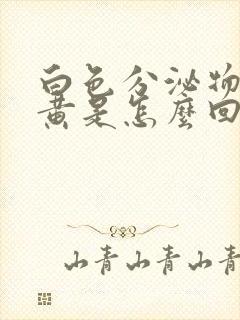 白色分泌物
黄是怎麼回
山青山青山青